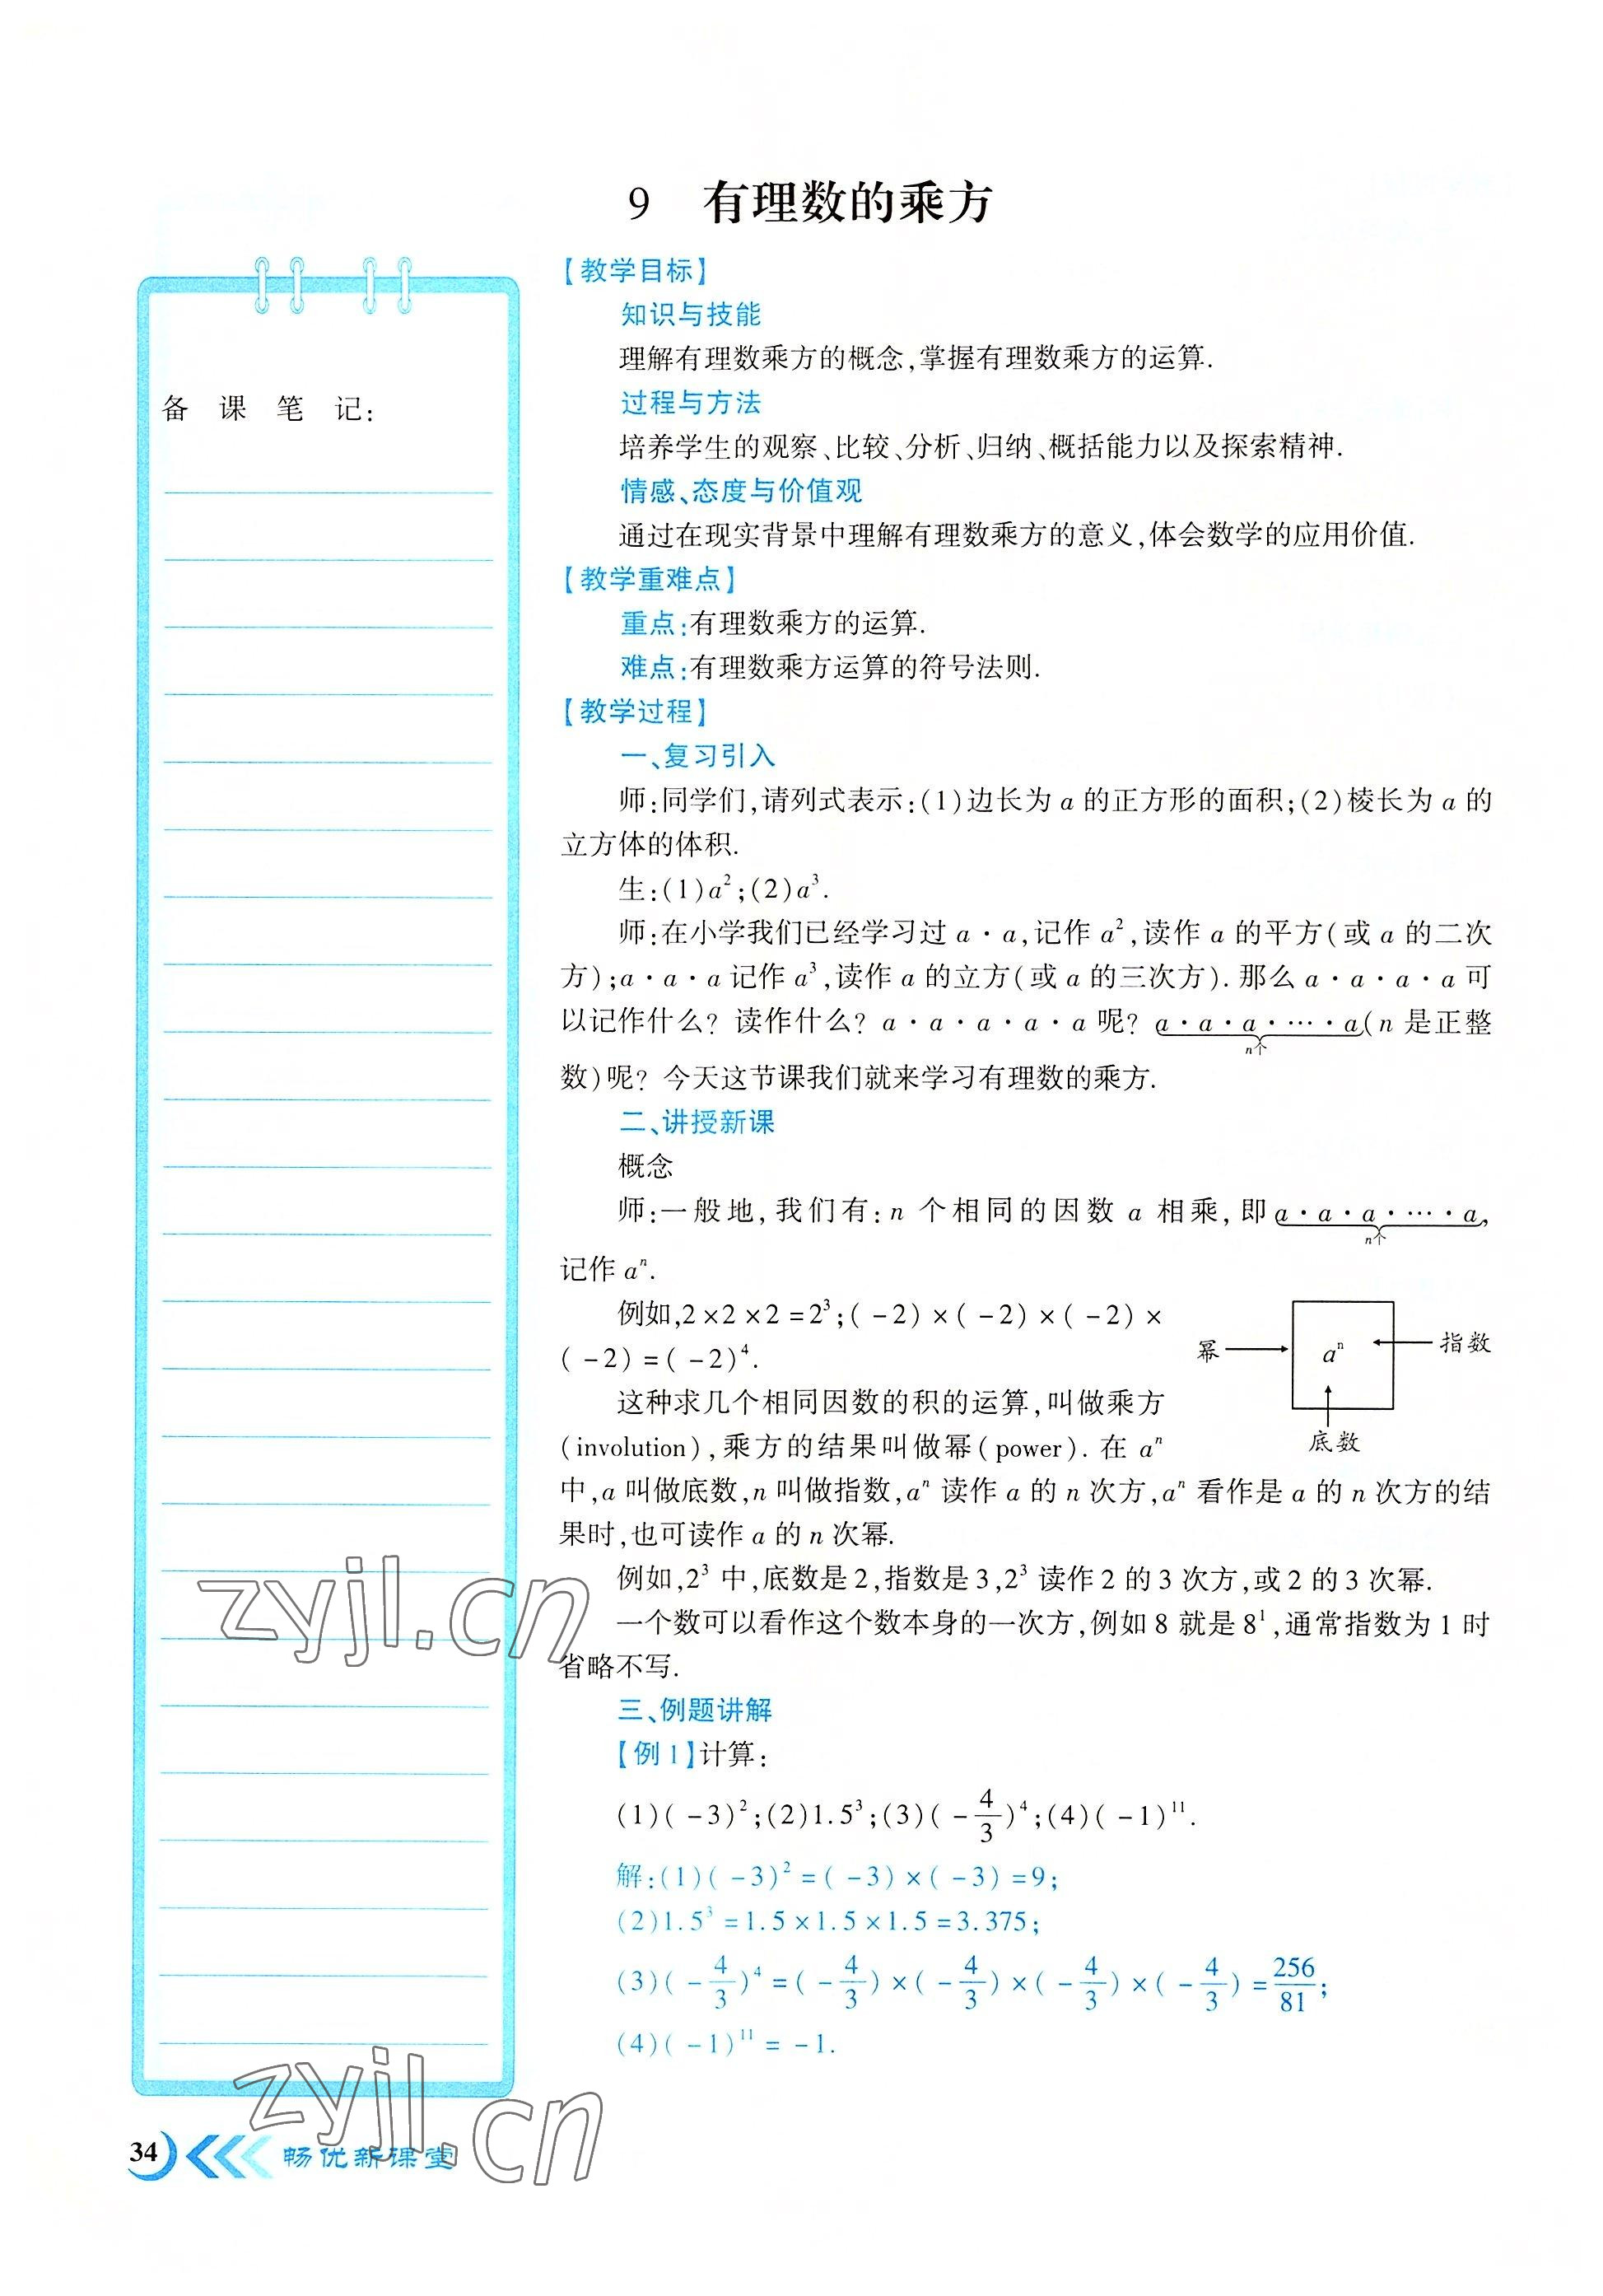 9 有理数的乘方
备 课 笔 记:
【教学目标】
知识与技能
理解有理数乘方的概念,掌握有理数乘方的运算.
过程与方法
培养学生的观察、比较、分析、归纳、概括能力以及探索精神.
情感、态度与价值观
通过在现实背景中理解有理数乘方的意义,体会数学的应用价值.
【教学重难点】
重点:有理数乘方的运算.
难点:有理数乘方运算的符号法则.
【教学过程】
一、复习引入
师:同学们,请列式表示:(1)边长为 a 的正方形的面积;(2)棱长为 a 的
立方体的体积.
生:(1)a²;(2)a³.
师:在小学我们已经学习过 a·a,记作 a²,读作 a 的平方(或 a 的二次
方);a·a·a 记作 a³,读作 a 的立方(或 a 的三次方). 那么 a·a·a·a 可
以记作什么? 读作什么? a·a·a·a·a 呢? a·a·a·…·a(n 是正整
n个
数)呢? 今天这节课我们就来学习有理数的乘方.
二、讲授新课
概念
师:一般地,我们有:n 个相同的因数 a 相乘,即 a·a·a·…·a,
n个
记作 aⁿ.
例如,2×2×2=2³;(-2)×(-2)×(-2)×
(-2)=(-2)⁴.
幂
aⁿ
指数
底数
这种求几个相同因数的积的运算,叫做乘方
(involution),乘方的结果叫做幂(power). 在 aⁿ
中,a 叫做底数,n 叫做指数,aⁿ 读作 a 的 n 次方,aⁿ 看作是 a 的 n 次方的结
果时,也可读作 a 的 n 次幂.
例如,2³ 中,底数是 2,指数是 3,2³ 读作 2 的 3 次方,或 2 的 3 次幂.
一个数可以看作这个数本身的一次方,例如 8 就是 8¹,通常指数为 1 时
省略不写.
三、例题讲解
【例 1】计算:
(1)(-3)²;(2)1.5³;(3)(-4/3)⁴;(4)(-1)¹¹.
解:(1)(-3)²=(-3)×(-3)=9;
(2)1.5³=1.5×1.5×1.5=3.375;
(3)(-4/3)⁴=(-4/3)×(-4/3)×(-4/3)×(-4/3)=256/81;
(4)(-1)¹¹=-1.
zyjl.cn
zyjl.cn
34 畅优新课堂